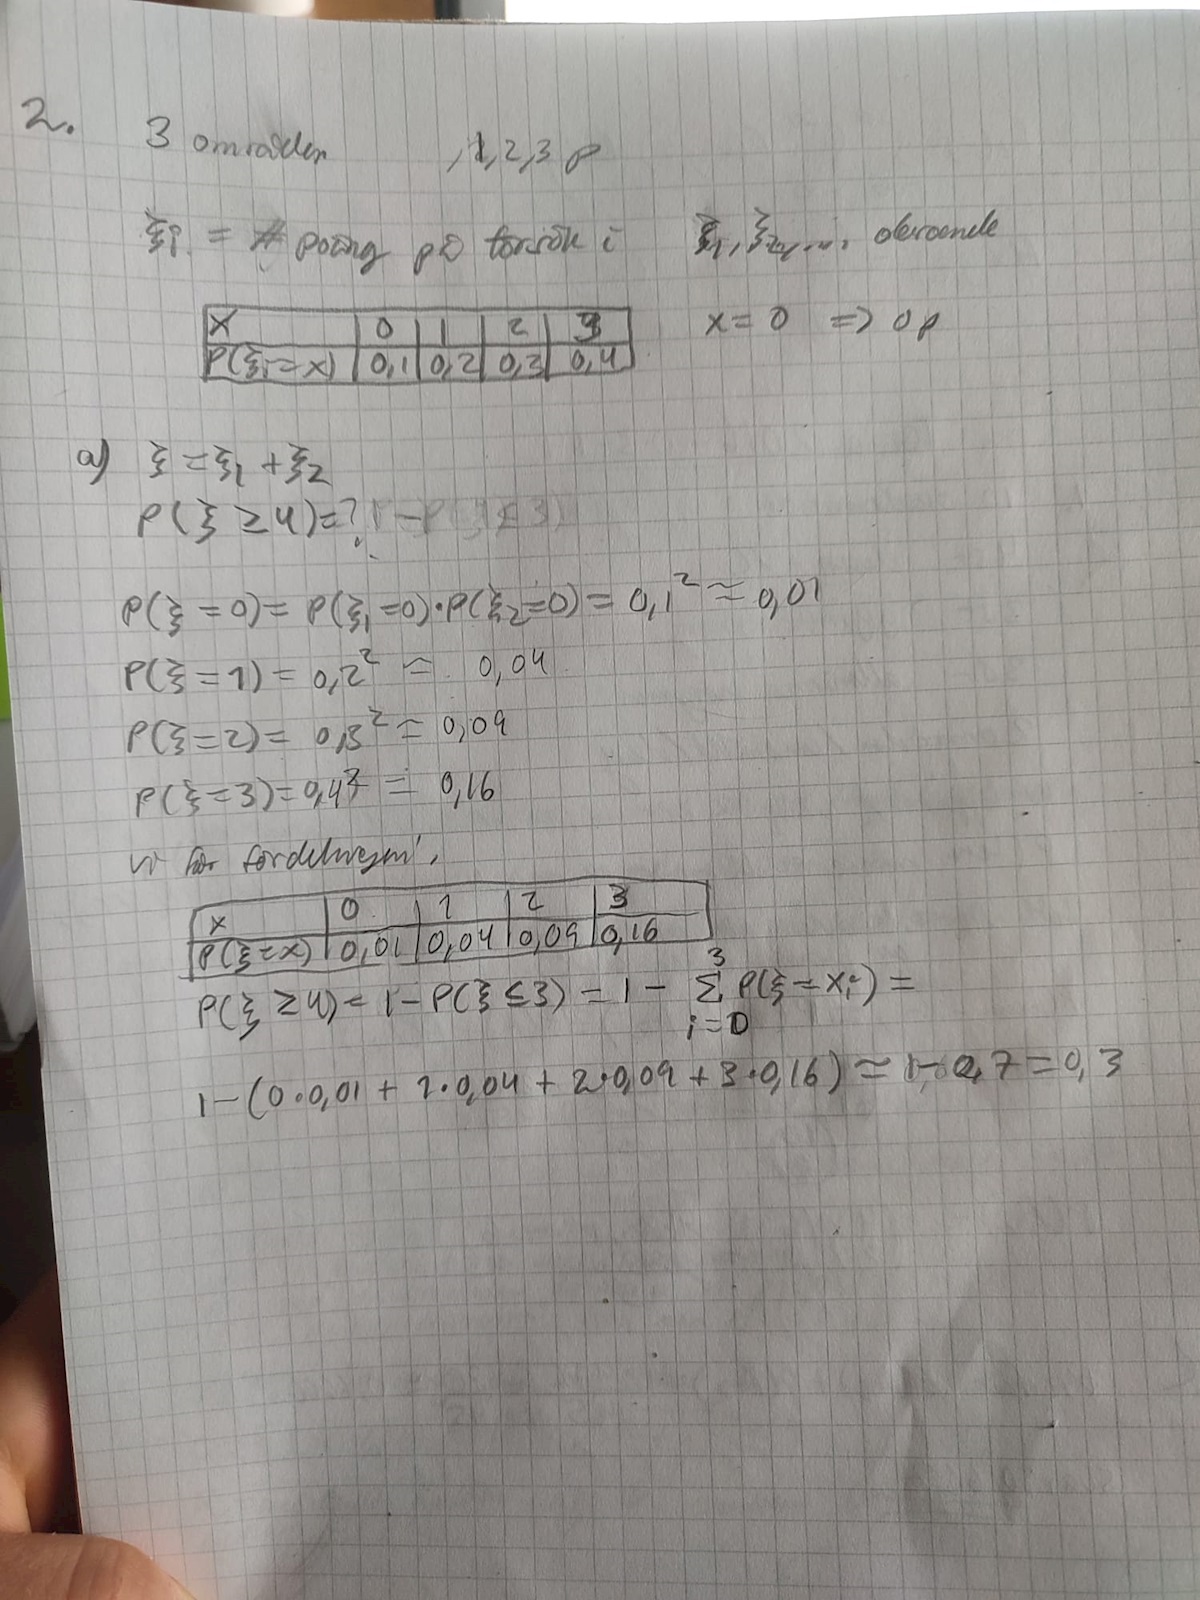 2. 3 områden 1,2,3 p
ξi = # poäng på försök i ξ1, ξ2, ..., oberoende
x 0 1 2 3 x = 0 => 0 p
P(ξi = x) 0,1 0,2 0,3 0,4
a) ξ = ξ1 + ξ2
P(ξ ≥ 4) = ? 1 - P(ξ ≤ 3)
P(ξ = 0) = P(ξ1 = 0) · P(ξ2 = 0) = 0,1² ≈ 0,01
P(ξ = 1) = 0,2² ≈ 0,04
P(ξ = 2) = 0,3² ≈ 0,09
P(ξ = 3) = 0,4² = 0,16
vi får fördelningen,
x 0 1 2 3
P(ξ = x) 0,01 0,04 0,09 0,16
P(ξ ≥ 4) = 1 - P(ξ ≤ 3) = 1 - Σ_{i=0}^{3} P(ξ = xi) =
1 - (0·0,01 + 1·0,04 + 2·0,09 + 3·0,16) ≈ 1 - 0,7 = 0,3